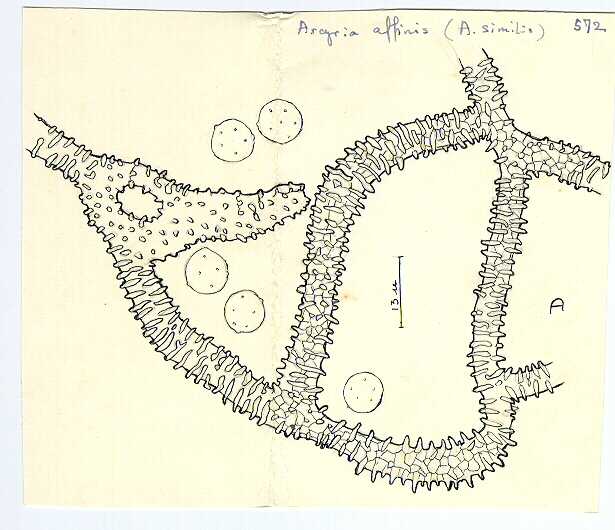 Arcyria affinis (A. similis) 572
13 µ
A